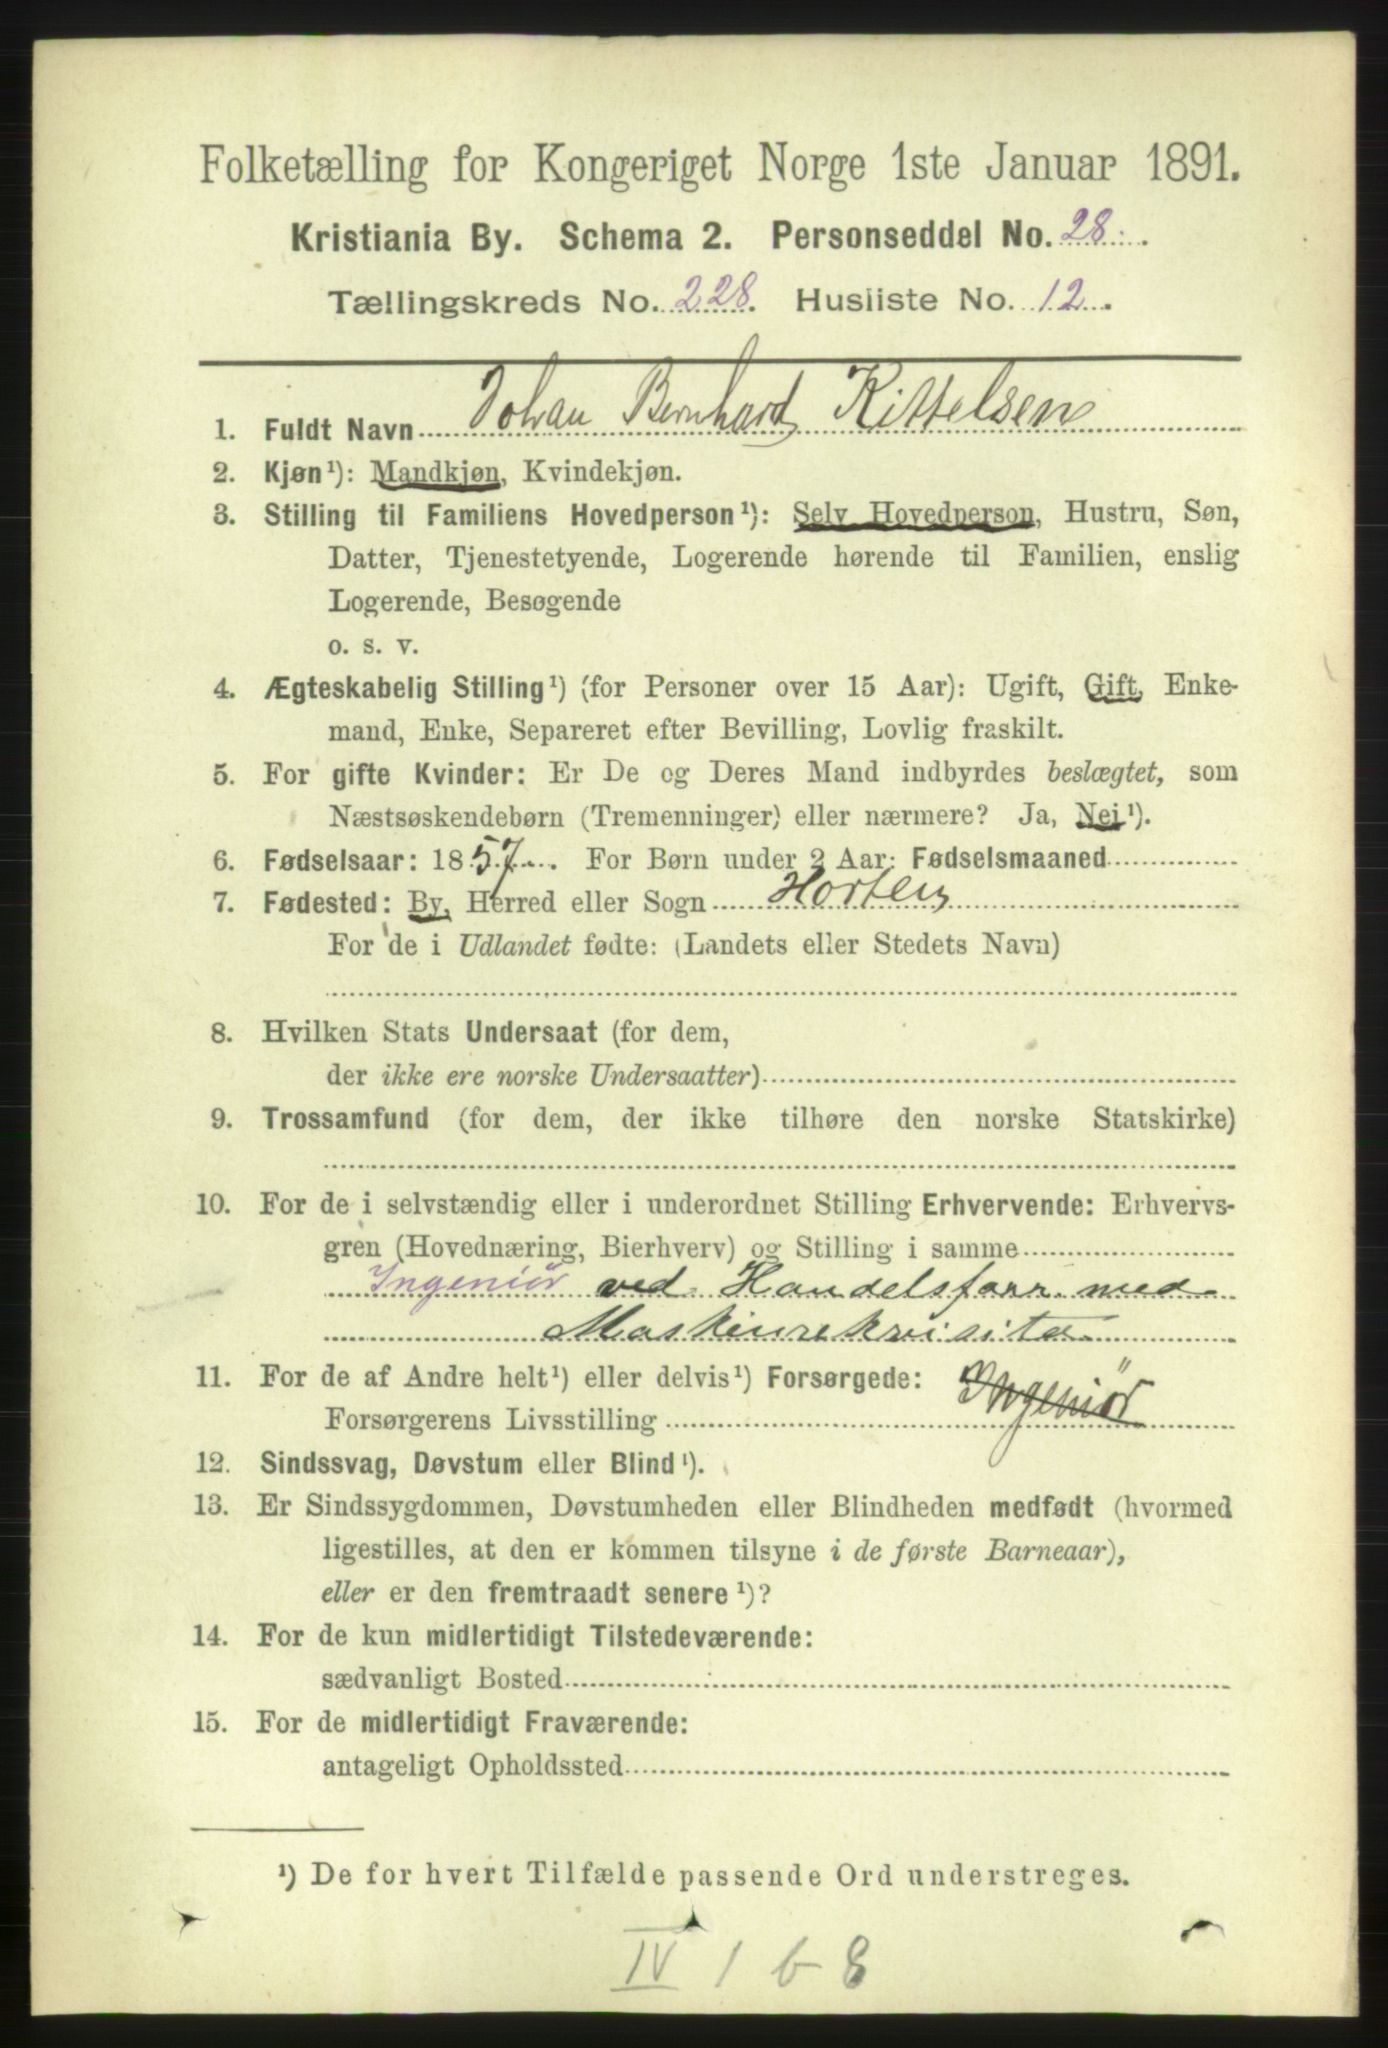 Folketælling for Kongeriget Norge 1ste Januar 1891.
Kristiania By. Schema 2. Personseddel No. 28.
Tællingskreds No. 228. Husliste No. 12.
1. Fuldt Navn Johan Bernhard Kittelsen
2. Kjøn¹): Mandkjøn, Kvindekjøn.
3. Stilling til Familiens Hovedperson¹): Selv Hovedperson, Hustru, Søn,
Datter, Tjenestetyende, Logerende hørende til Familien, enslig
Logerende, Besøgende
o. s. v.
4. Ægteskabelig Stilling¹) (for Personer over 15 Aar): Ugift, Gift, Enke-
mand, Enke, Separeret efter Bevilling, Lovlig fraskilt.
5. For gifte Kvinder: Er De og Deres Mand indbyrdes beslægtet, som
Næstsøskendebørn (Tremenninger) eller nærmere? Ja, Nei¹).
6. Fødselsaar: 1857. For Børn under 2 Aar: Fødselsmaaned
7. Fødested: By, Herred eller Sogn Horten
For de i Udlandet fødte: (Landets eller Stedets Navn)
8. Hvilken Stats Undersaat (for dem,
der ikke ere norske Undersaatter)
9. Trossamfund (for dem, der ikke tilhøre den norske Statskirke)
10. For de i selvstændig eller i underordnet Stilling Erhvervende: Erhvervs-
gren (Hovednæring, Bierhverv) og Stilling i samme
Ingeniör ved Handelsforr. med
Maskinrekvisita
11. For de af Andre helt¹) eller delvis¹) Forsørgede:
Forsørgerens Livsstilling Ingeniör
12. Sindssvag, Døvstum eller Blind¹).
13. Er Sindssygdommen, Døvstumheden eller Blindheden medfødt (hvormed
ligestilles, at den er kommen tilsyne i de første Barneaar),
eller er den fremtraadt senere¹)?
14. For de kun midlertidigt Tilstedeværende:
sædvanligt Bosted
15. For de midlertidigt Fraværende:
antageligt Opholdssted
¹) De for hvert Tilfælde passende Ord understreges.
IV 1 b 8